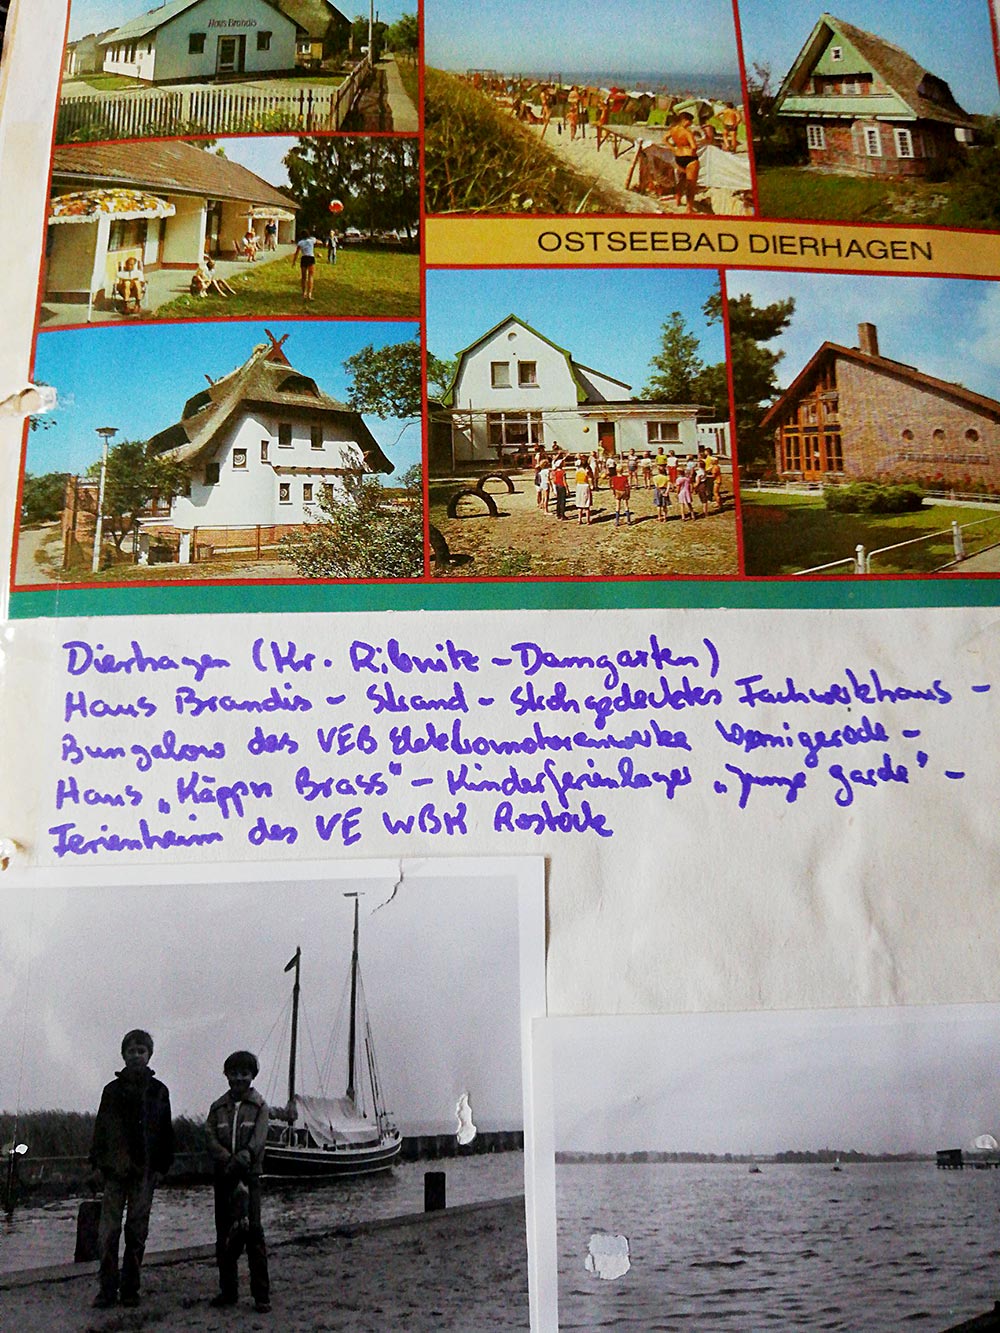 Haus Brandis
OSTSEEBAD DIERHAGEN
Dierhagen (Kr. Ribnitz - Damgarten)
Haus Brandis - Strand - Strohgedecktes Fachwerkhaus -
Bungalow des VEB Elektromotorenwerke Wernigerode -
Haus „Käppn Brass" - Kinderferienlager „Junge Garde" -
Ferienheim des VE WBK Rostock